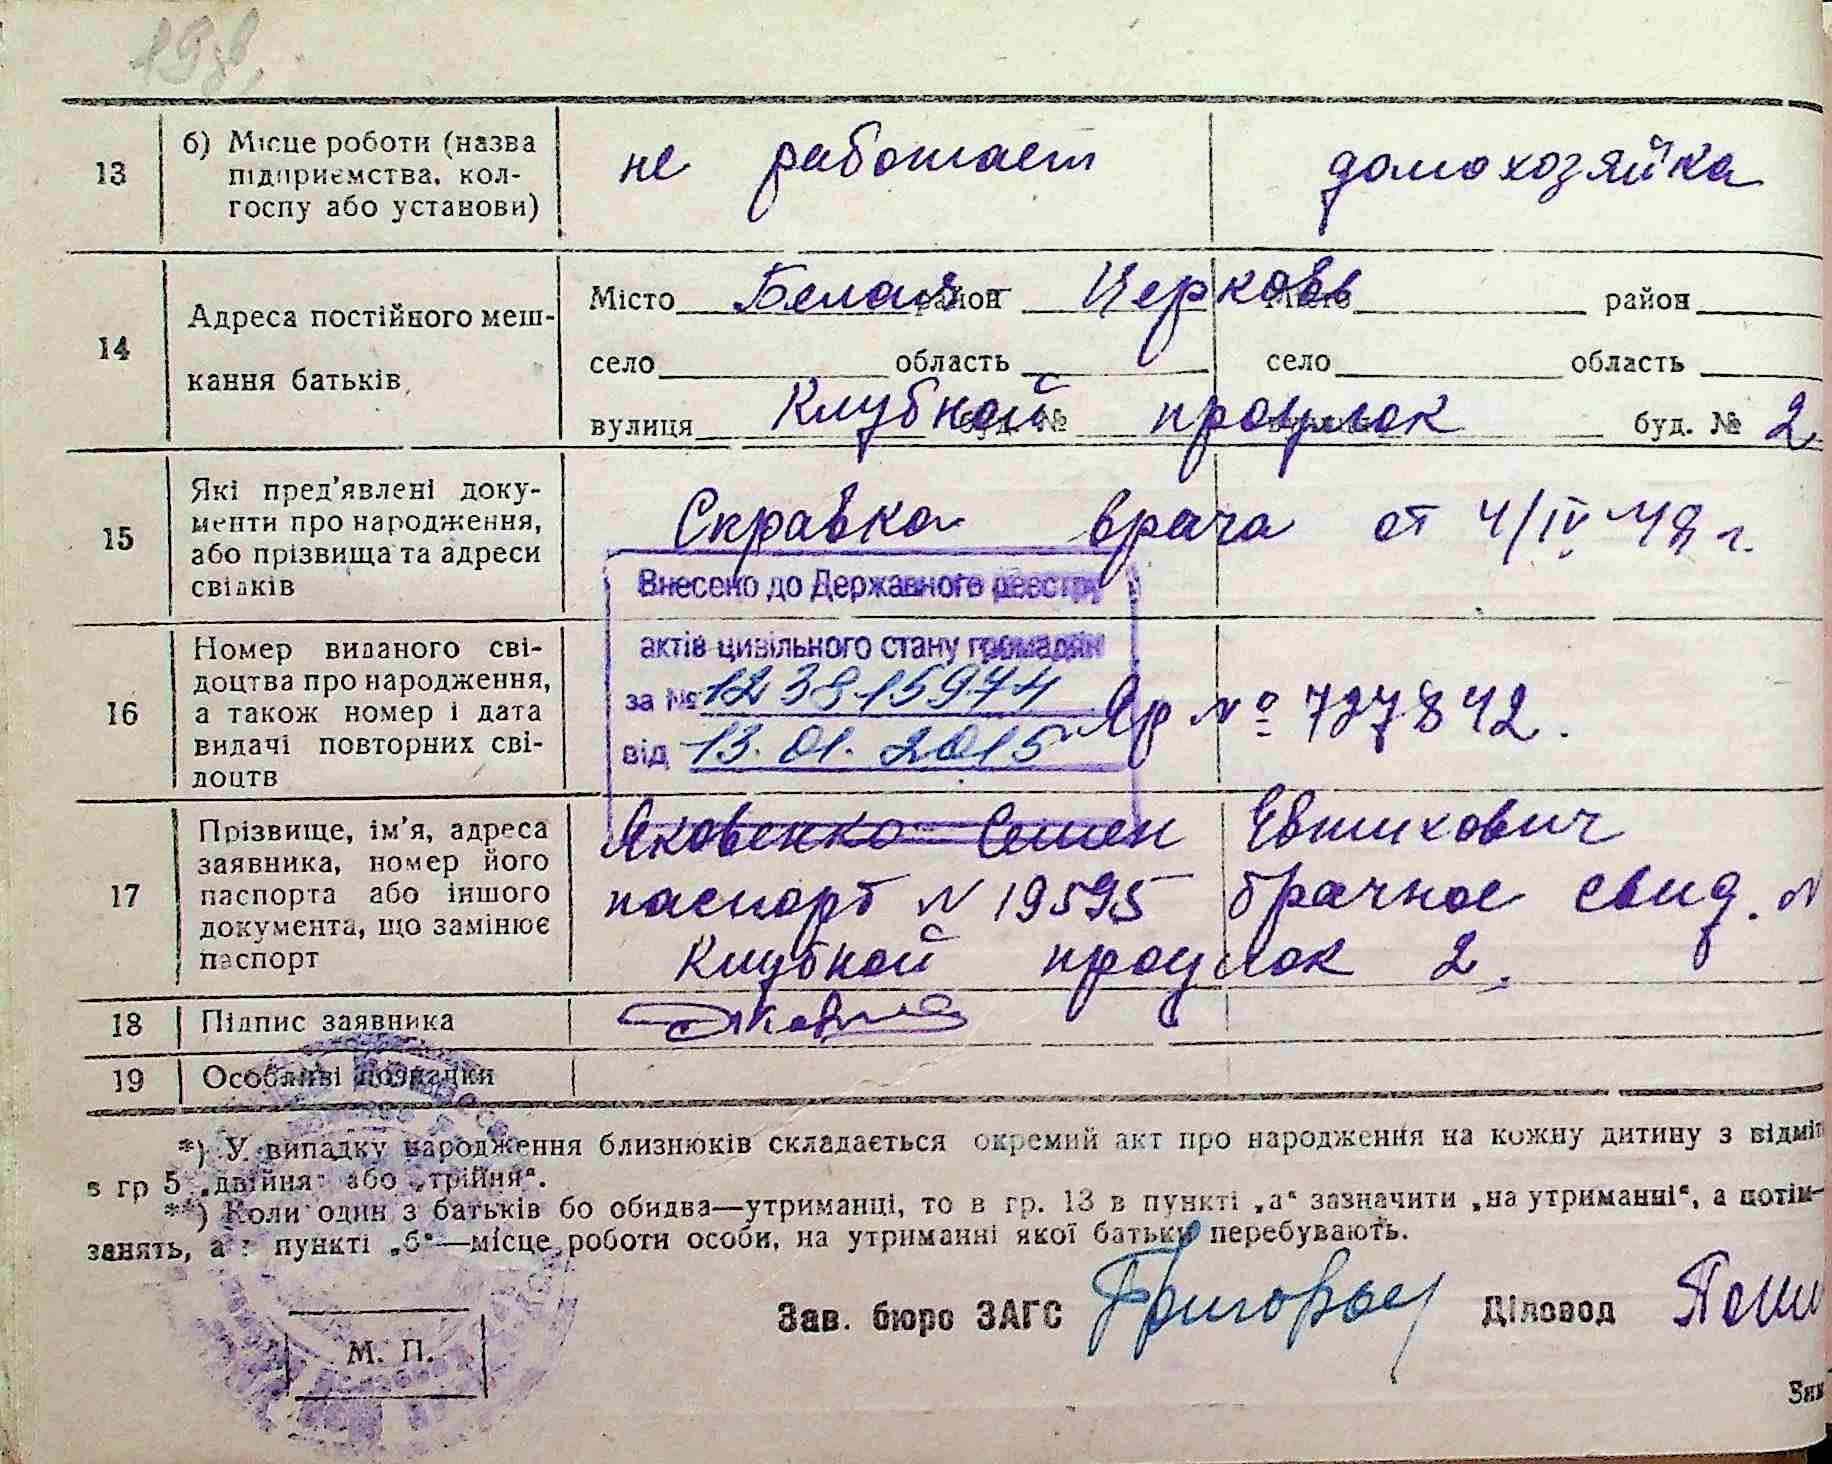 198.
13 б) Місце роботи (назва підприємства, колгоспу або установи) не работает домохозяйка
14 Адреса постійного мешкання батьків
Місто Белая район Церковь Місто район
село область село область
вулиця Клубной буд. № проулок буд. № 2
15 Які пред'явлені документи про народження, або прізвища та адреси свідків Справка врача от 4/IV 48 г.
Внесено до Державного реєстру
актів цивільного стану громадян
за № 1238159744
від 13.01.2015
16 Номер виданого свідоцтва про народження, а також номер і дата видачі повторних свідоцтв Яр № 727842.
17 Прізвище, ім'я, адреса заявника, номер його паспорта або іншого документа, що замінює паспорт
Яковенко Семен Евтихович
паспорт N 19595 брачное свид. N
Клубной проулок 2.
18 Підпис заявника
19 Особливі познадки
*) У випадку народження близнюків складається окремий акт про народження на кожну дитину з відміт
в гр 5 „двійня" або „трійня".
**) Коли один з батьків бо обидва—утриманці, то в гр. 13 в пункті „а" зазначити „на утриманні", а потім—
занять, а в пункті „б"—місце роботи особи, на утриманні якої батьки перебувають.
Зав. бюро ЗАГС Діловод
М. П.